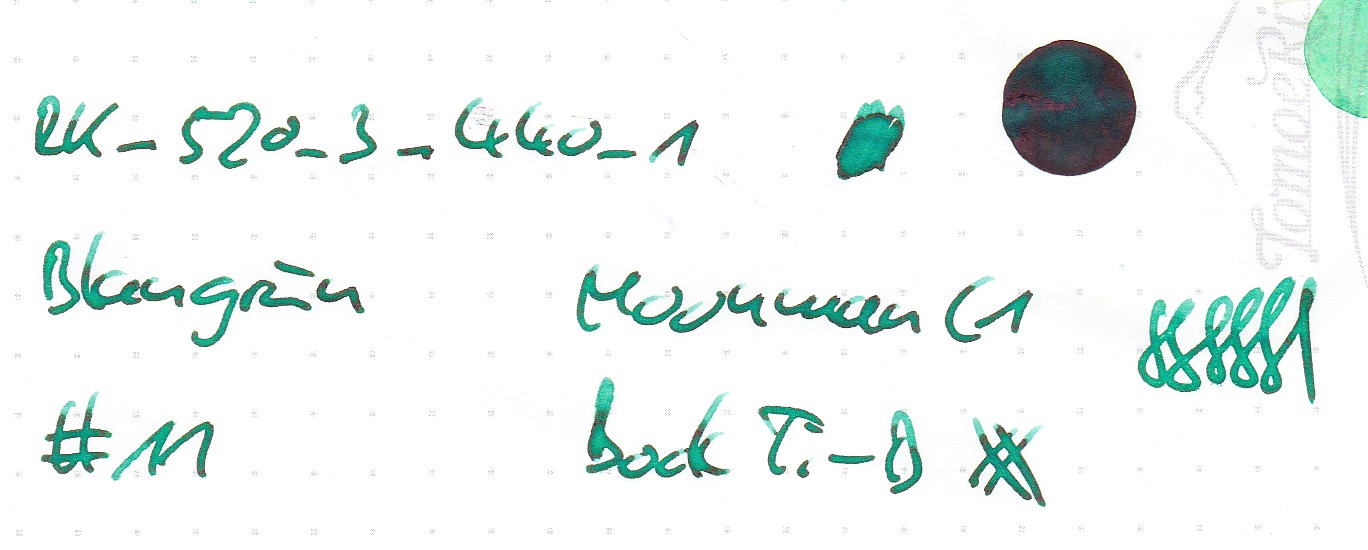 RK_520_3_440_1
Blaugrün
Moonman C1
#11
bock Ti-B
TomoeRi